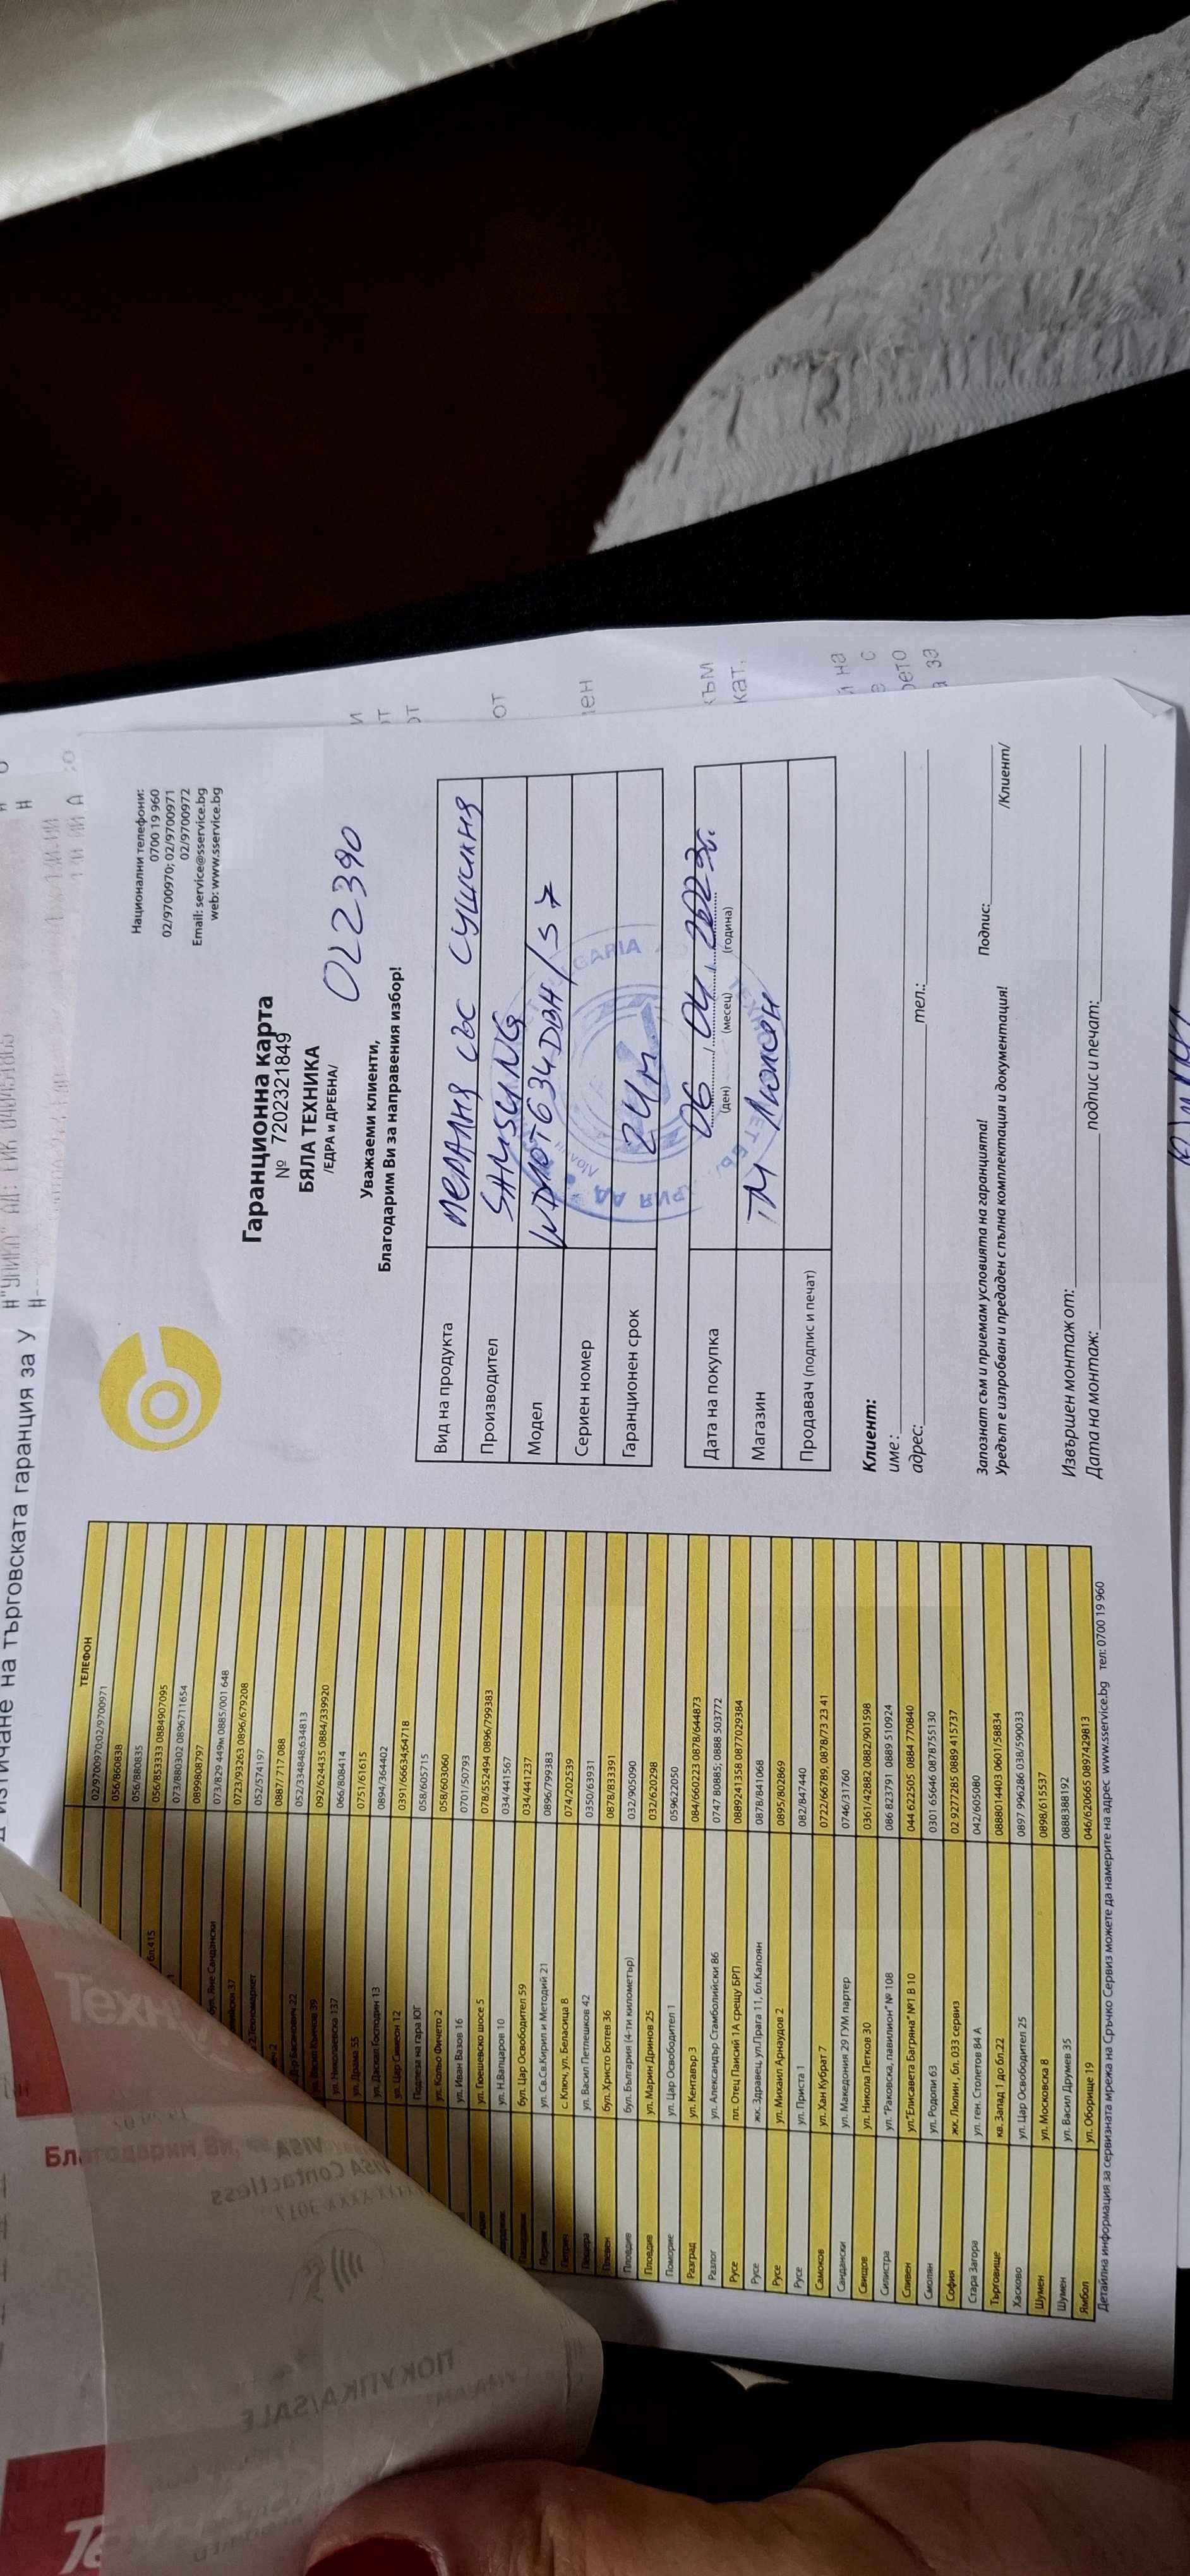 Национални телефони:
0700 19 960
02/9700970; 02/9700971
02/9700972
Email: service@sservice.bg
web: www.sservice.bg
Гаранционна карта
№ 7202321849
БЯЛА ТЕХНИКА
/ЕДРА и ДРЕБНА/
022390
Уважаеми клиенти,
Благодарим Ви за направения избор!
Вид на продукта ПЕРАЛНЯ СЪС СУШИЛНЯ
Производител SAMSUNG
Модел WD10T634DBH/S7
Сериен номер
Гаранционен срок 24м
Дата на покупка 06 / 04 / 2023г.
(ден) (месец) (година)
Магазин ТМ Люлин
Продавач (подпис и печат)
Клиент:
име:
адрес: тел.:
Запознат съм и приемам условията на гаранцията! Подпис:
Уредът е изпробван и предаден с пълна комплектация и документация! /Клиент/
Извършен монтаж от:
Дата на монтаж: подпис и печат:
ТЕЛЕФОН
02/9700970;02/9700971
056/860838
056/880835
бл.415 056/853333 0884907095
073/880302 0896711654
0899808797
бул. Яне Сандански 073/829 449м 0885/001 648
0723/93263 0896/679208
052/574197
0887/ 717 088
052/334848;634813
092/624435 0884/339920
ул. Николаевска 137 066/808414
ул. Драма 55 0751/61615
ул. Даскал Господин 13 0894/364402
ул. Цар Симеон 12 0391/66634,64718
Подлеза на гара ЮГ 058/605715
ул. Кольо Фичето 2 058/603060
ул. Иван Вазов 16 0701/50793
ул. Гюешевско шосе 5 078/552494 0896/799383
ул. Н.Вапцаров 10 034/441567
бул. Цар Освободител 59 034/441237
Перник ул. Св.Св.Кирил и Методий 21 0896/799383
Петрич с Ключ, ул. Беласица 8 074/202539
Пещера ул. Васил Петлешков 42 0350/63931
Плевен бул. Христо Ботев 36 0878/833391
Пловдив бул. България (4-ти километър) 032/905090
Пловдив ул. Марин Дринов 25 032/620298
Поморие ул. Цар Освободител 1 059622050
Разград ул. Кентавър 3 084/660223 0878/644873
Разлог ул. Александър Стамболийски 86 0747 80885; 0888 503772
Русе пл. Отец Паисий 1А срещу БРП 0889241358 0877029384
Русе жк. Здравец, ул.Прага 11, бл.Калоян 0878/841068
Русе ул. Михаил Арнаудов 2 0895/802869
Русе ул. Приста 1 082/847440
Самоков ул. Хан Кубрат 7 0722/66789, 0878/773 23 41
Сандански ул. Македония 29 ГУМ партер 0746/31760
Свищов ул. Никола Петков 30 0361/42882 0882/901598
Силистра ул. "Раковска, павилион" № 108 086 823791 0889 510924
Сливен ул."Елисавета Багряна" №1 В 10 044 622505 0884 770840
Смолян ул. Родопи 63 0301 65646 0878755130
София жк. Люлин , бл. 033 сервиз 02 9277285 0889 415737
Стара Загора ул. ген. Столетов 84 А 042/605080
Търговище кв. Запад 1 до бл.22 0888014403 0601/58834
Хасково ул. Цар Освободител 25 0897 996286 038/590033
Шумен ул. Московска 8 0898/615537
Шумен ул. Васил Друмев 35 0888388192
Ямбол ул. Оборище 19 046/620665 0897429813
Детайлна информация за сервизната мрежа на Сръчко Сервиз можете да намерите на адрес www.sservice.bg тел: 0700 19 960
изтичане на търговската гаранция за у
VISA
VISA Contactless
ПОКУПКА/SALE